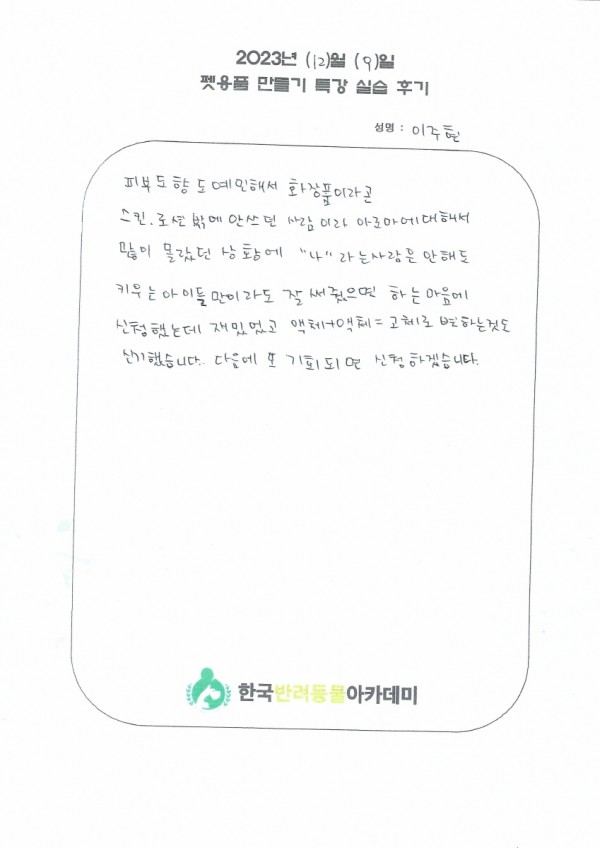 2023년 (12)월 (9)일
펫용품 만들기 특강 실습 후기
성명 : 이주현
피부도 향도 예민해서 화장품이라곤
스킨.로션 밖에 안쓰던 사람이라 아로마에대해서
많이 몰랐던 상황에 "나"라는사람은 안해도
키우는 아이들만이라도 잘 써줬으면 하는마음에
신청했는데 재밌었고 액체+액체=고체로 변하는것도
신기했습니다. 다음에 또 기회되면 신청하겠습니다.
한국반려동물아카데미